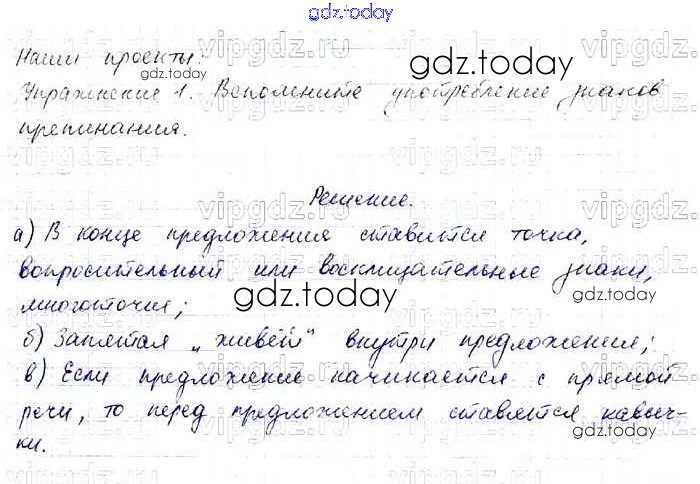 gdz.today
Наши проекты.
gdz.today
gdz.today
Упражнение 1. Вспомните употребление знаков
препинания.
Решение.
а) В конце предложения ставится точка,
вопросительный или восклицательные знаки,
многоточия;
gdz.today
gdz.today
б) Запятая „живёт" внутри предложения;
в) Если предложение начинается с прямой
речи, то перед предложением ставятся кавыч-
ки.
gdz.today
vipgdz.ru